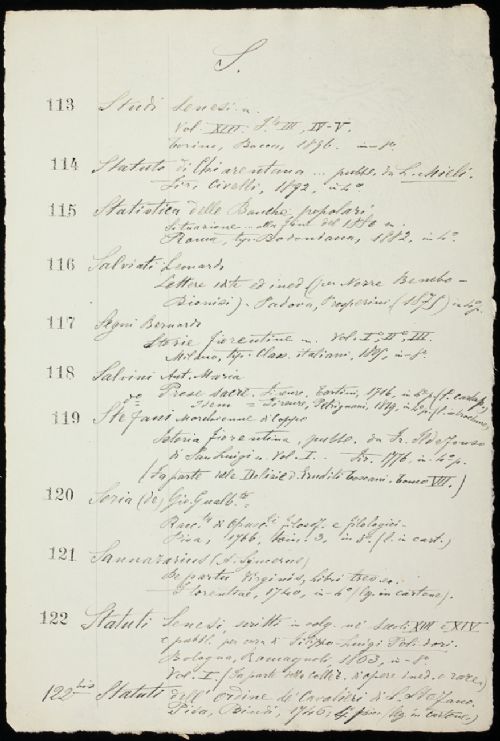 S.
113 Studi Senesi
Vol. XIII. III, IV-V.
Torino, Bocca, 1896. in-8°
114 Statuto di Chiarentana ... pubbl. da L. Mieli.
Fir. Civelli, 1892, in-4°
115 Statistica delle Banche popolari
Situazione alla fine del 1880
Roma, tip. Bodoniana, 1882, in 4°.
116 Salviati Leonardo
Lettere edite ed ined. (per Nozze Benebo-
Bionisi). Padova, Prosperini (1875) in 4°.
117 Segni Bernardo
Storie fiorentine Vol. I° II° III.
Milano, tip. Class. italiani, 1805, in-8°
118 Salvini Ant. Maria
Prose sacre. Firenze, Tartini, 1716, in 4°
Idem Firenze,
119 Stefani Marchionne di Coppo
Istoria fiorentina, pubbl. da Fr. Ildefonso
di San Luigi Vol. I. Fir. 1776. in 4° p.
(Fa parte delle Delizie d. Eruditi toscani. Tomo VII.)
120 Soria (de) Gio. Gualb.
Racc. di Opusc. filosof. e filologici.
Pisa, 1766, 3, in 8°. (l. in cart.)
121 Sannazarius (A. Syncerus)
De partu Virginis, libri tres
Florentiae, 1740, in-4° (leg. in cartone).
122 Statuti Senesi, scritti in volg. ne' Secoli XIII e XIV.
e pubbl. per cura di Filippo-Luigi Polidori.
Bologna, Romagnoli, 1863, in-8°
Vol. I. (Fa parte della collez. d'opere ined. o rare)
122 bis Statuti dell' Ordine de' Cavalieri di S. Stefano.
Pisa, Bindi, 1746, (leg. in cartone.)